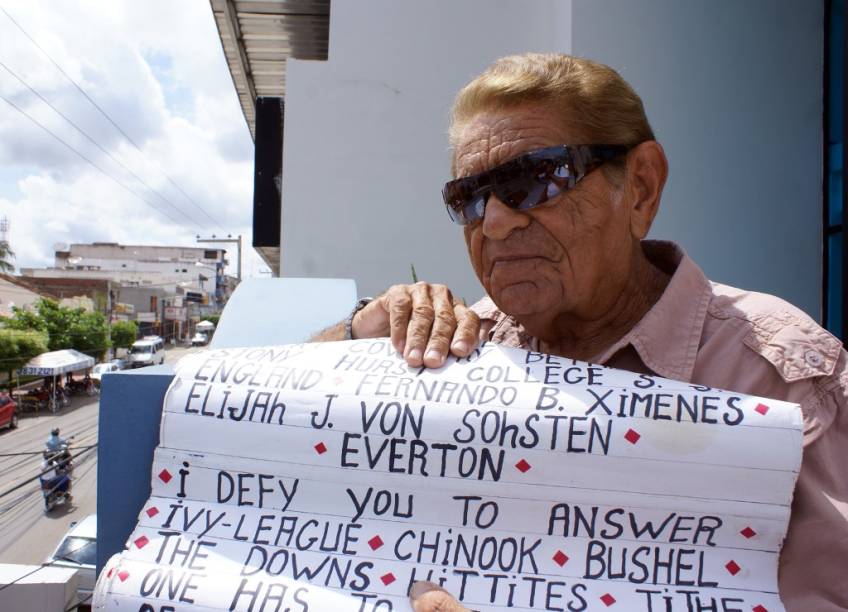 STONY
HURST COLLEGE S. S.
ENGLAND ♦ FERNANDO B. XiMENES ♦
ELiJAh J. VON SOhSTEN ♦
♦ EVERTON ♦
♦ i DEFY YOU TO ANSWER ♦
♦ iVY-LEAGUE ♦ ChiNOOK ♦ BUSHEL ♦
♦ THE DOWNS ♦ HiTTiTES ♦ TiThE
ONE HAS TO